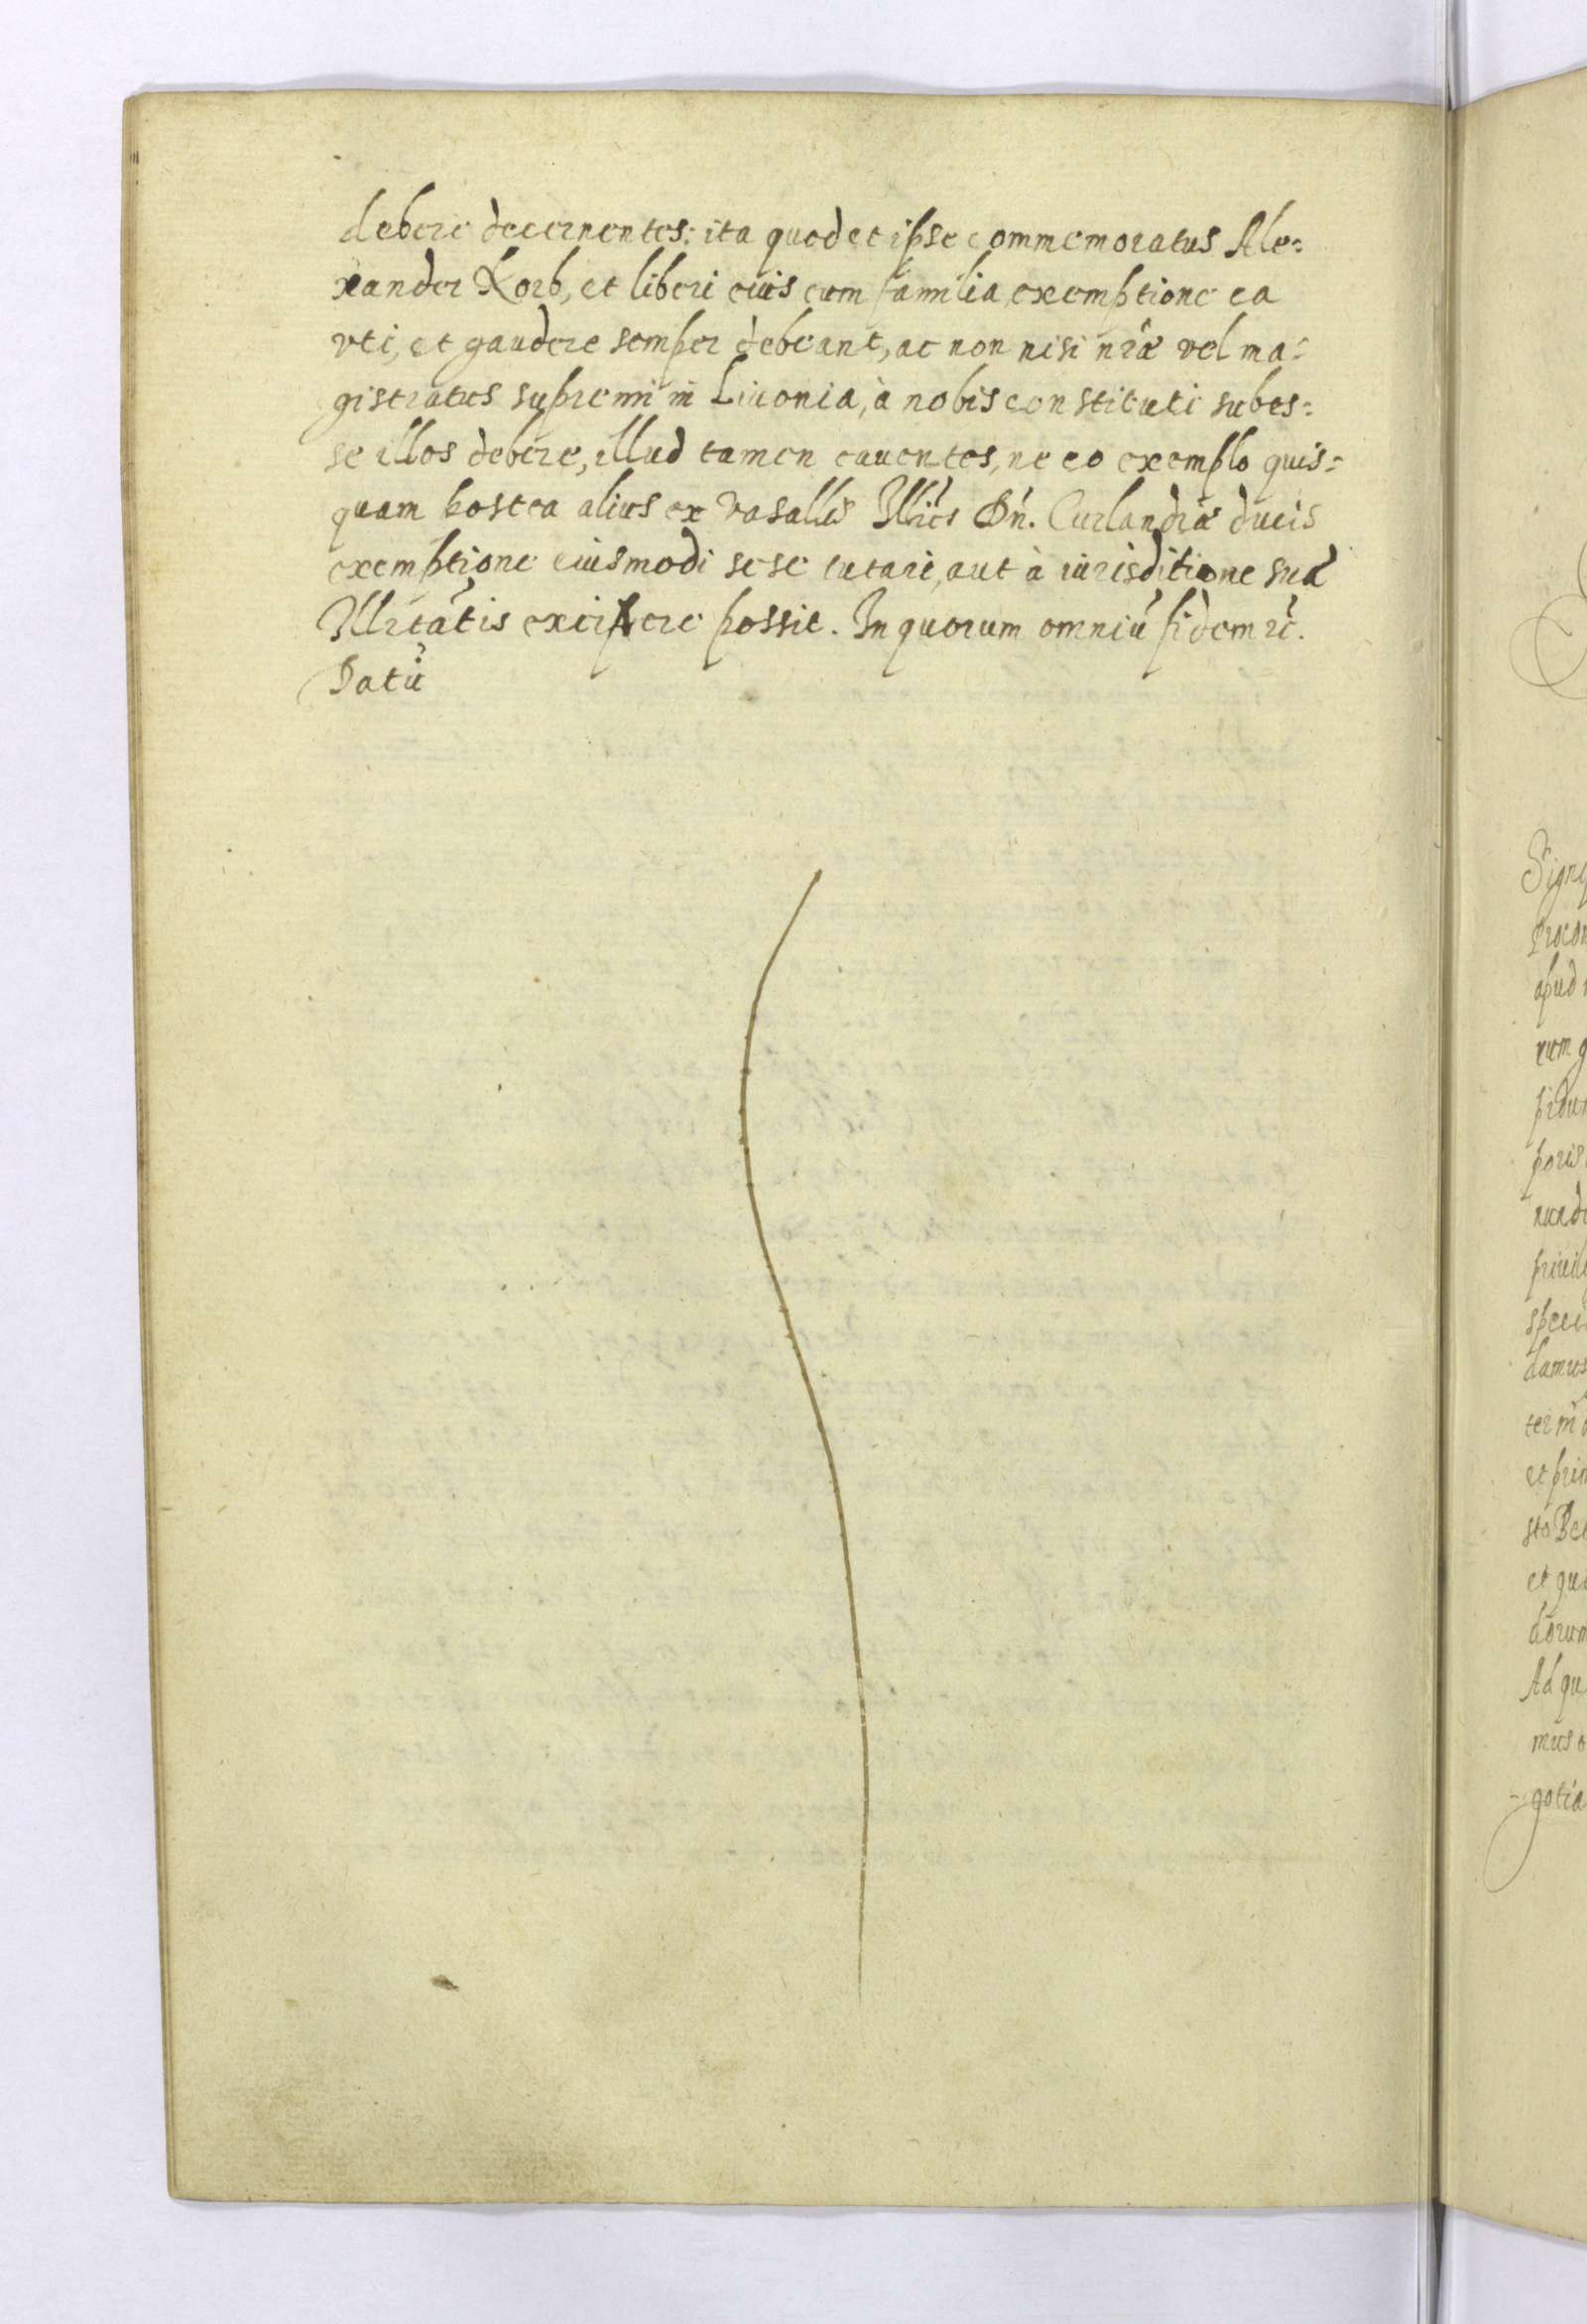 debere decernentes: ita quod et ipse commemoratus Ale=
xander Korb, et liberi eius cum familia exemptione ea
vti, et gaudere semper debeant, ac non nisi nrãe vel ma=
gistratus supremi in Liuonia, à nobis constituti subes=
se illos debere, illud tamen cauentes, ne eo exemplo quis=
quam postea alius ex vasallis Illris Dn. Curlandiæ ducis
exemptione eiusmodi sese tutari, aut à iurisditione suæ
Illrtatis excipere possit. In quorum omniũ fidem etc.
Datũ
Sign
Procon
apud
rum g
pidum
poris
nundi
priuile
speci
damus
ter m
et prim
sto Be
et qua
dorum
Ad qu
mus o
gotia